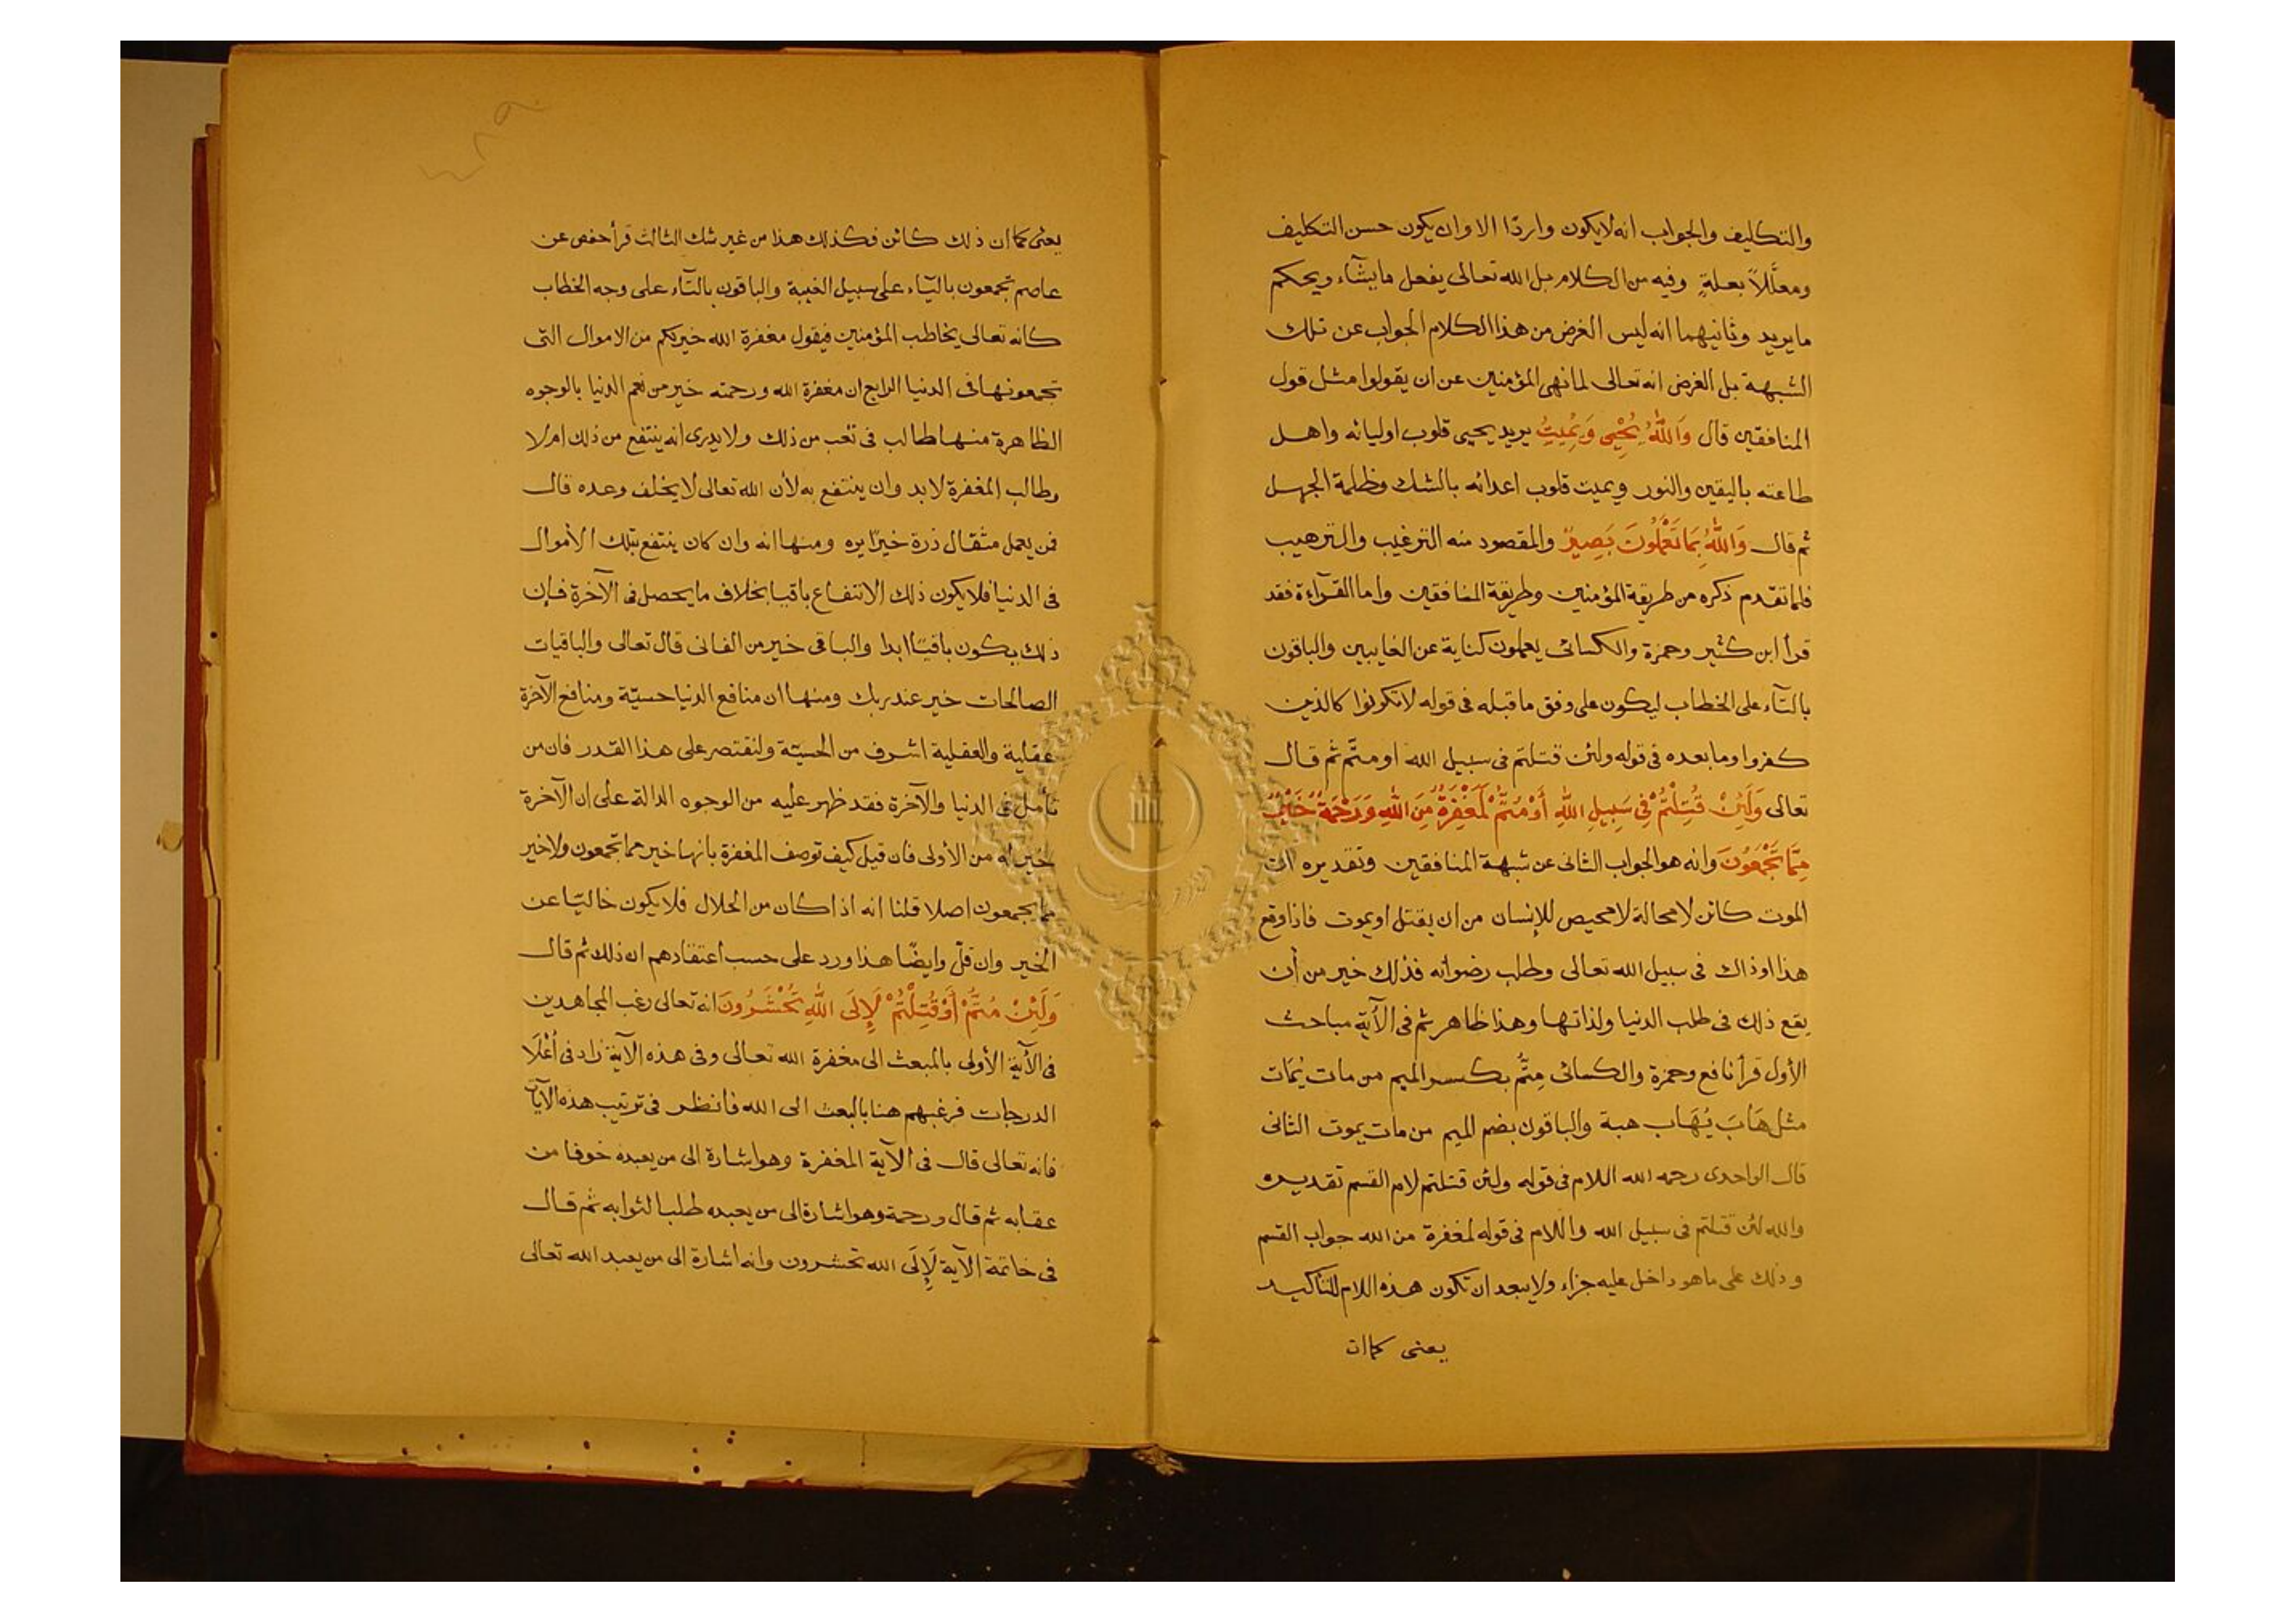 والتكليف والجواب انه لا يكون واردًا الا وان يكون حسن التكليف
ومعلَّلاً بعلةٍ وفيه من الكلام بل الله تعالى يفعل ما يشآء ويحكم
ما يريد وثانيهما انه ليس الغرض من هذا الكلام الجواب عن تلك
الشبهة بل الغرض انه تعالى لما نهى المؤمنين عن ان يقولوا مثل قول
المنافقين قال وَاللّٰهُ يُحْيِى وَيُمِيتُ يريد يحيى قلوب اوليائه واهل
طاعته باليقين والنور ويميت قلوب اعدائه بالشك وظلمة الجهل
ثم قال وَاللّٰهُ بِمَا تَعْمَلُونَ بَصِيرٌ والمقصود منه الترغيب والترهيب
فلما تقدم ذكره من طريقة المؤمنين وطريقة المنافقين واما القرآءة فقد
قرأ ابن كثير وحمزة والكسائى يعملون كناية عن الغايبين والباقون
بالتآء على الخطاب ليكون على وفق ما قبله فى قوله لا تكونوا كالذين
كفروا وما بعده فى قوله ولئن قتلتم فى سبيل الله او متّم ثم قال
تعالى وَلَئِنْ قُتِلْتُمْ فِى سَبِيلِ اللّٰهِ أَوْ مُتُّمْ لَمَغْفِرَةٌ مِنَ اللّٰهِ وَرَحْمَةٌ خَيْرٌ
مِمَّا تَجْمَعُونَ وانه هو الجواب الثانى عن شبهة المنافقين وتقديره ان
الموت كائن لا محالة لا محيص للإنسان من ان يقتل او يموت فاذا وقع
هذا او ذاك فى سبيل الله تعالى وطلب رضوانه فذلك خير من أن
يقع ذلك فى طلب الدنيا ولذاتها وهذا ظاهر ثم فى الآية مباحث
الأول قرأ نافع وحمزة والكسائى مِتُّم بكسر الميم من مات يُمَات
مثل هَابَ يُهَاب هبة والباقون بضم الميم من مات يموت الثانى
قال الواحدى رحمه الله اللام فى قوله ولئن قتلتم لام القسم تقديره
والله لئن قتلتم فى سبيل الله واللام فى قوله لمغفرة من الله جواب القسم
وذلك على ما هو داخل عليه جزاء ولا يبعد ان تكون هذه اللام للتاكيد
يعنى كما ان
يعنى كما ان ذلك كائن فكذلك هذا من غير شك الثالث قرأ حفص عن
عاصم تجمعون باليآء على سبيل الغيبة والباقون بالتآء على وجه الخطاب
كانه تعالى يخاطب المؤمنين فيقول مغفرة الله خير لكم من الاموال التى
تجمعونها فى الدنيا الرابع ان مغفرة الله ورحمته خير من نعم الدنيا بالوجوه
الظاهرة منها طالب فى تعب من ذلك ولا يدرى انه ينتفع من ذلك ام لا
وطالب المغفرة لا بد وان ينتفع به لأن الله تعالى لا يخلف وعده قال
فمن يعمل مثقال ذرة خيرًا يره ومنها انه وان كان ينتفع بتلك الأموال
فى الدنيا فلا يكون ذلك الانتفاع باقيا بخلاف ما يحصل فى الآخرة فإن
ذلك يكون باقيًا ابدا والباقى خير من الفانى قال تعالى والباقيات
الصالحات خير عند ربك ومنها ان منافع الدنيا حسيّة ومنافع الآخرة
عقلية والعقلية اشرف من الحسيّة ولنقتصر على هذا القدر فان من
تأمل فى الدنيا والآخرة فقد ظهر عليه من الوجوه الدالة على ان الآخرة
خير له من الأولى فان قيل كيف توصف المغفرة بانها خير مما تجمعون ولا خير
مما يجمعون اصلا قلنا انه اذا كان من الحلال فلا يكون خاليًا عن
الخير وان قلّ وايضًا هذا ورد على حسب اعتقادهم ان ذلك ثم قال
وَلَئِنْ مُتُّمْ أَوْ قُتِلْتُمْ لَإِلَى اللّٰهِ تُحْشَرُونَ انه تعالى رغب المجاهدين
فى الآية الأولى بالمبعث الى مغفرة الله تعالى وفى هذه الآية زاد فى أعْلَا
الدرجات فرغبهم هنا بالبعث الى الله فانظر فى ترتيب هذه الآيات
فانه تعالى قال فى الآية المغفرة وهو اشارة الى من يعبده خوفا من
عقابه ثم قال ورحمة وهو اشارة الى من يعبده طلبا لثوابه ثم قال
فى خاتمة الآية لَإِلَى الله تحشرون وانه اشارة الى من يعبد الله تعالى